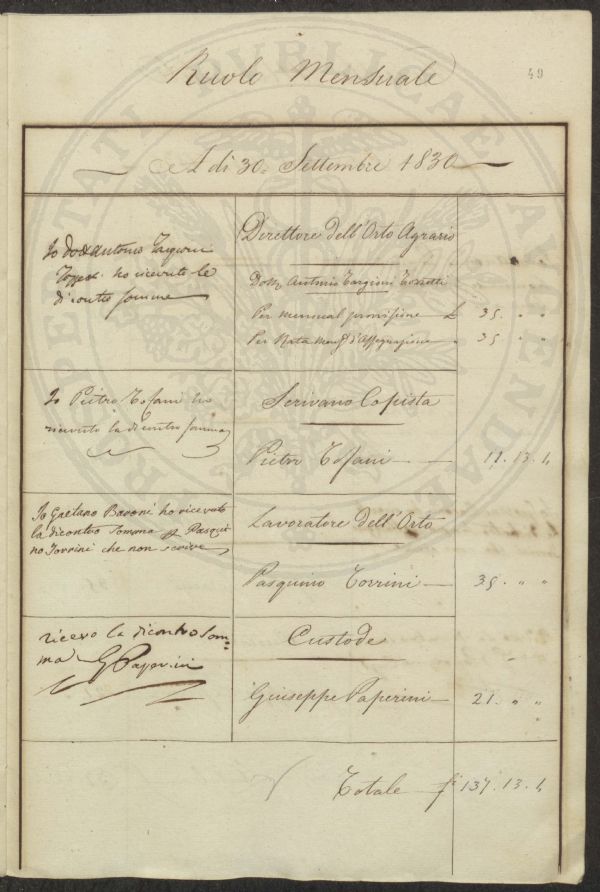 49
Ruolo Mensuale
A dì 30. Settembre 1830
Io Dott. Antonio Targioni
Tozzetti ho ricevuto le
di contro somme
Direttore dell'Orto Agrario
Dott. Antonio Targioni Tozzetti
Per mensual provvisione £ 35. " "
Per Rata d'Assegnazione " 35 " "
Io Pietro Tofani ho
ricevuto la di contro somma
Scrivano Copista
Pietro Tofani 11. 13. 4
Io Gaetano Baroni ho ricevuto
la dicontro Somma p Pasqui
no Torrini che non scrive
Lavoratore dell'Orto
Pasquino Torrini 35. " "
ricevo la dicontro Som=
ma G Paperini
Custode
Giuseppe Paperini 21. " "
Totale £ 137. 13. 4
PVBLICAE